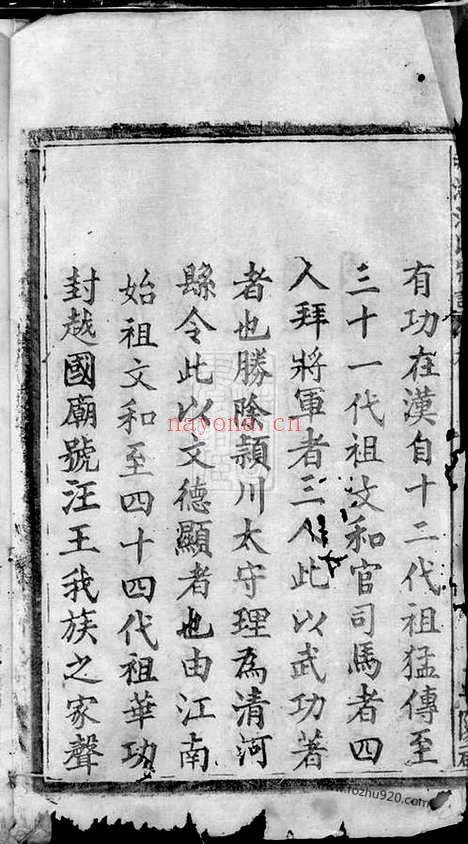 有功在漢自十二代祖猛傳至
三十一代祖文和官司馬者四
入拜將軍者三人此以武功著
者也勝除頴川太守理為清河
縣令此以文德顯者也由江南
始祖文和至四十四代祖華功
封越國廟號汪王我族之家聲
nayond.cn
www.fozhu920.com